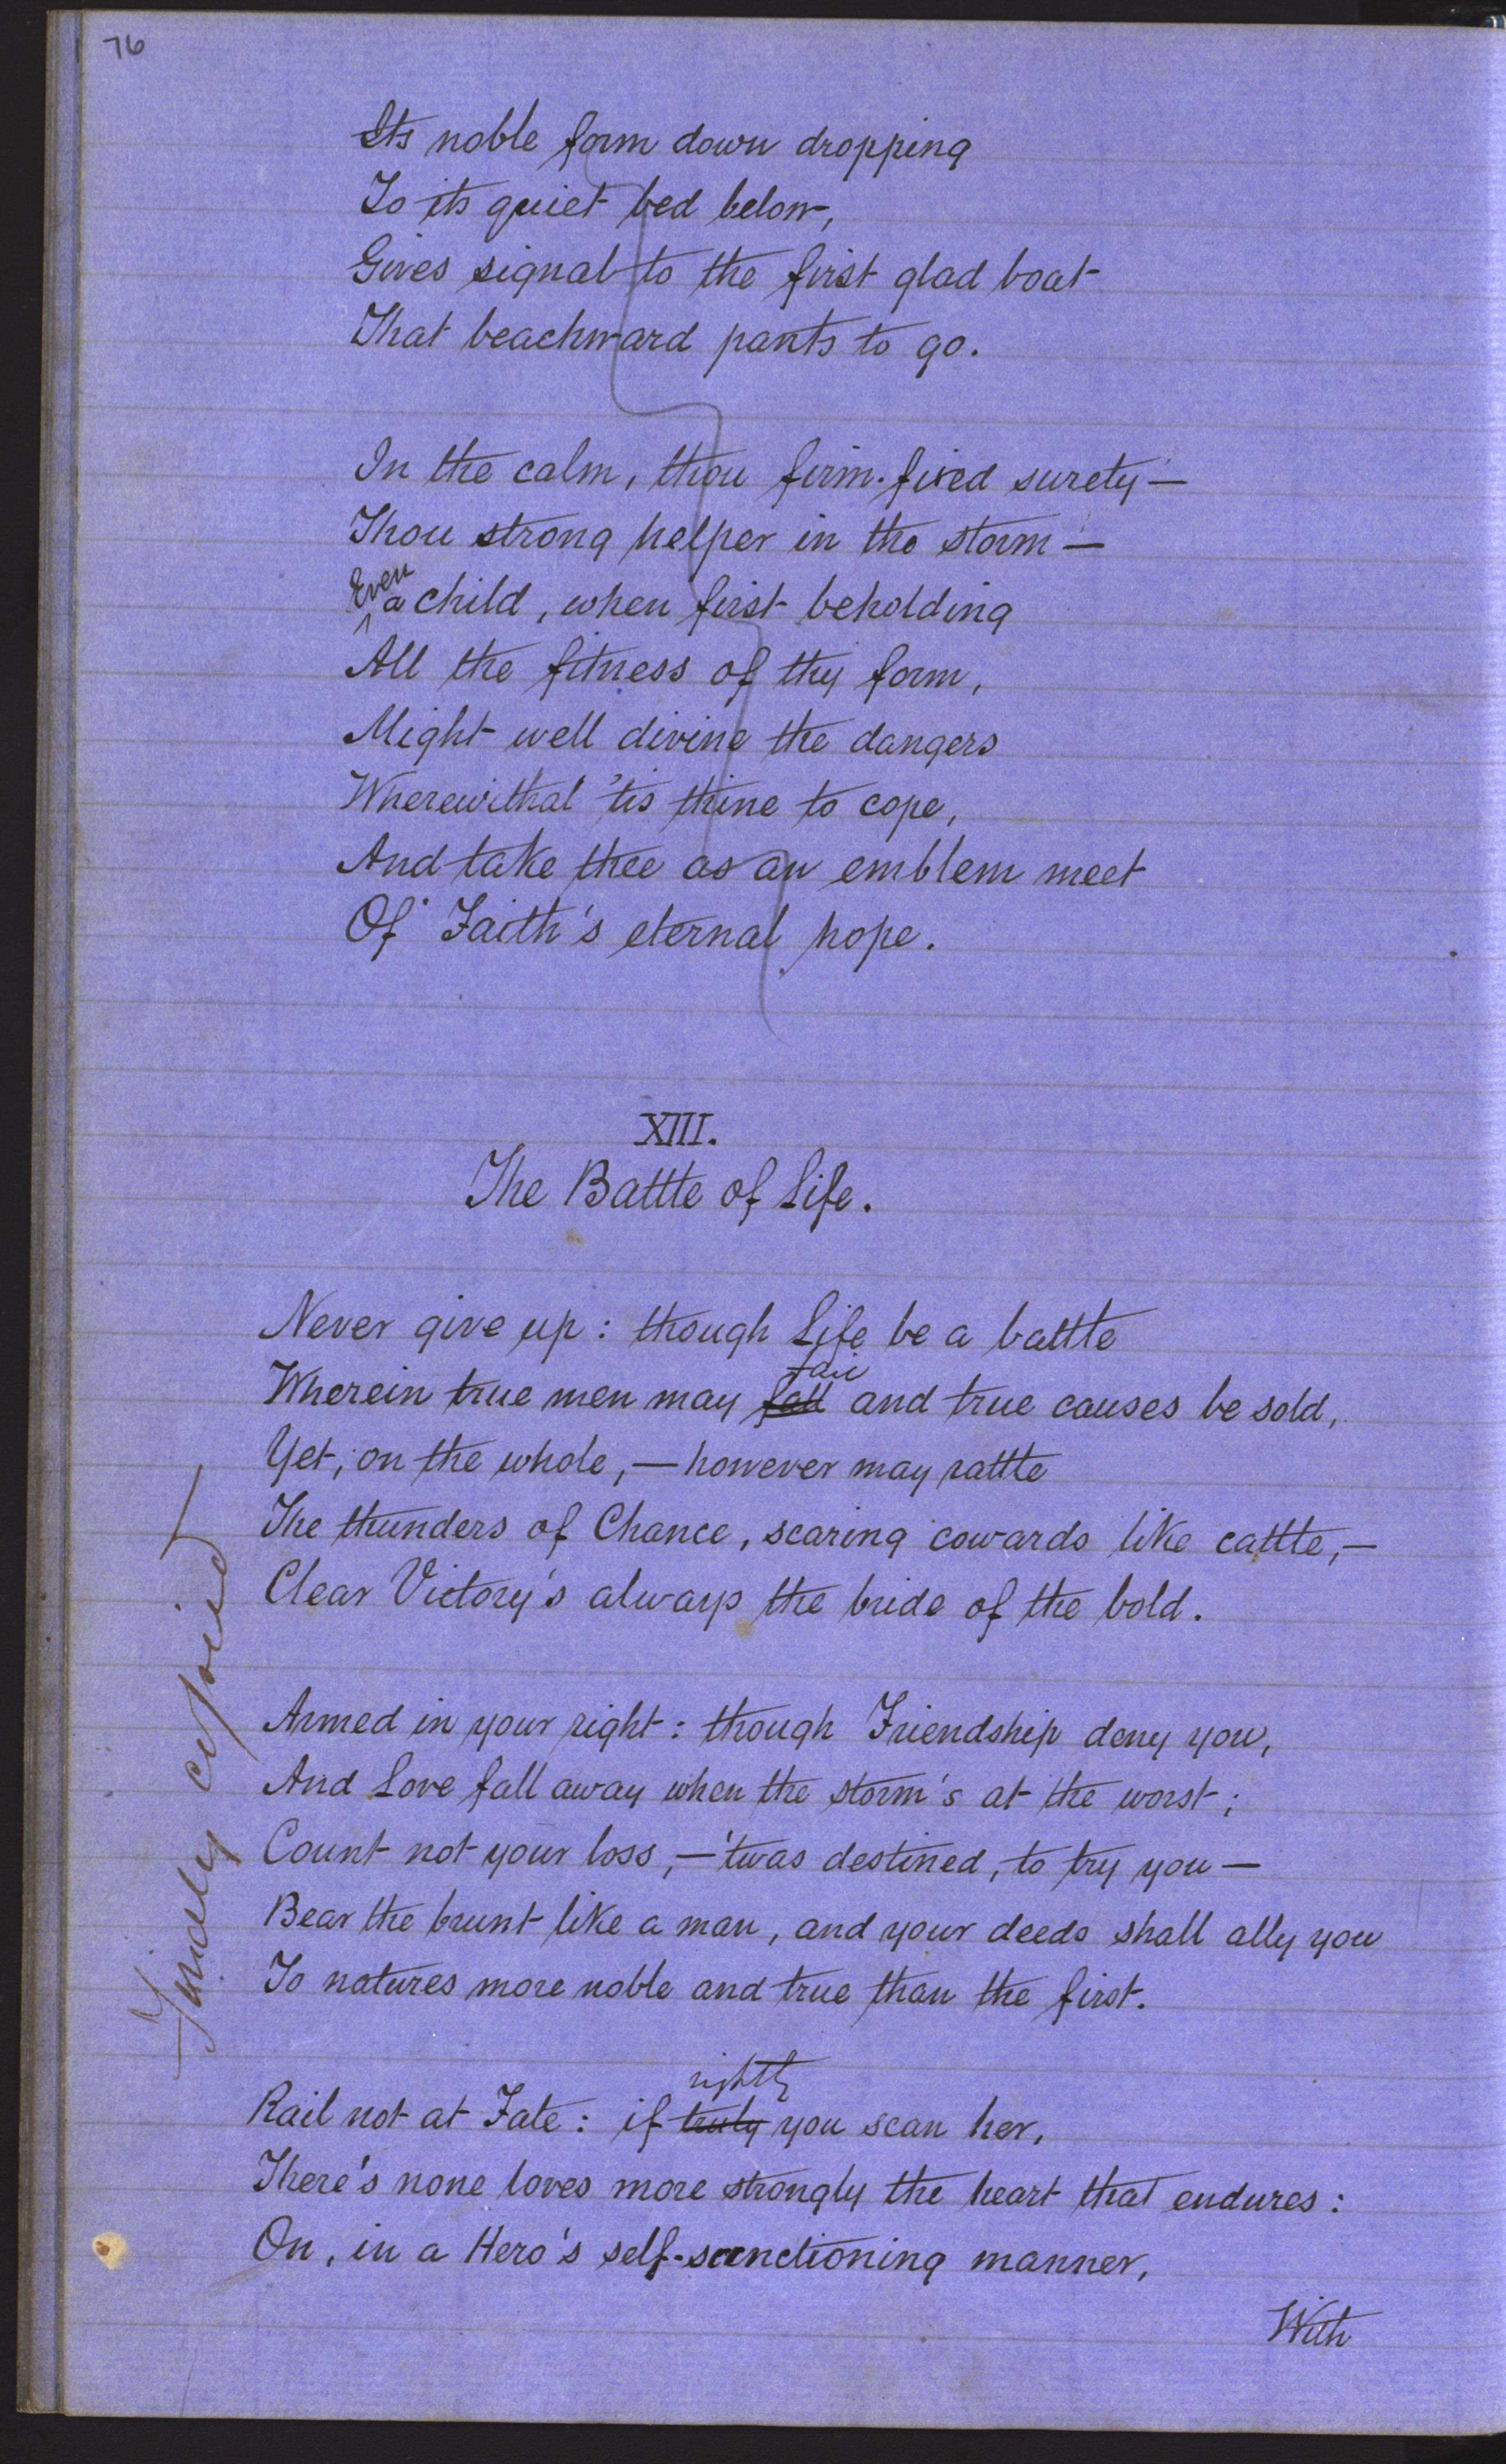 76
Its noble form down dropping
To its quiet bed below,
Gives signal to the first glad boat
That beachward pants to go.
In the calm, thou firm-fixed surety —
Thou strong helper in the storm —
Even a child, when first beholding
All the fitness of thy form,
Might well divine the dangers
Wherewithal 'tis thine to cope,
And take thee as an emblem meet
Of Faith's eternal hope.
XIII.
The Battle of Life.
Never give up: though Life be a battle
fail
Wherein true men may fall and true causes be sold,
Yet, on the whole, — however may rattle
The thunders of Chance, scaring cowards like cattle, —
Clear Victory's always the bride of the bold.
Armed in your right: though Friendship deny you,
And Love fall away when the storm's at the worst;
Count not your loss, — 'twas destined, to try you —
Bear the brunt like a man, and your deeds shall ally you
To natures more noble and true than the first.
rightly
Rail not at Fate: if truly you scan her,
There's none loves more strongly the heart that endures:
On, in a Hero's self-sanctioning manner,
With
Finally copied